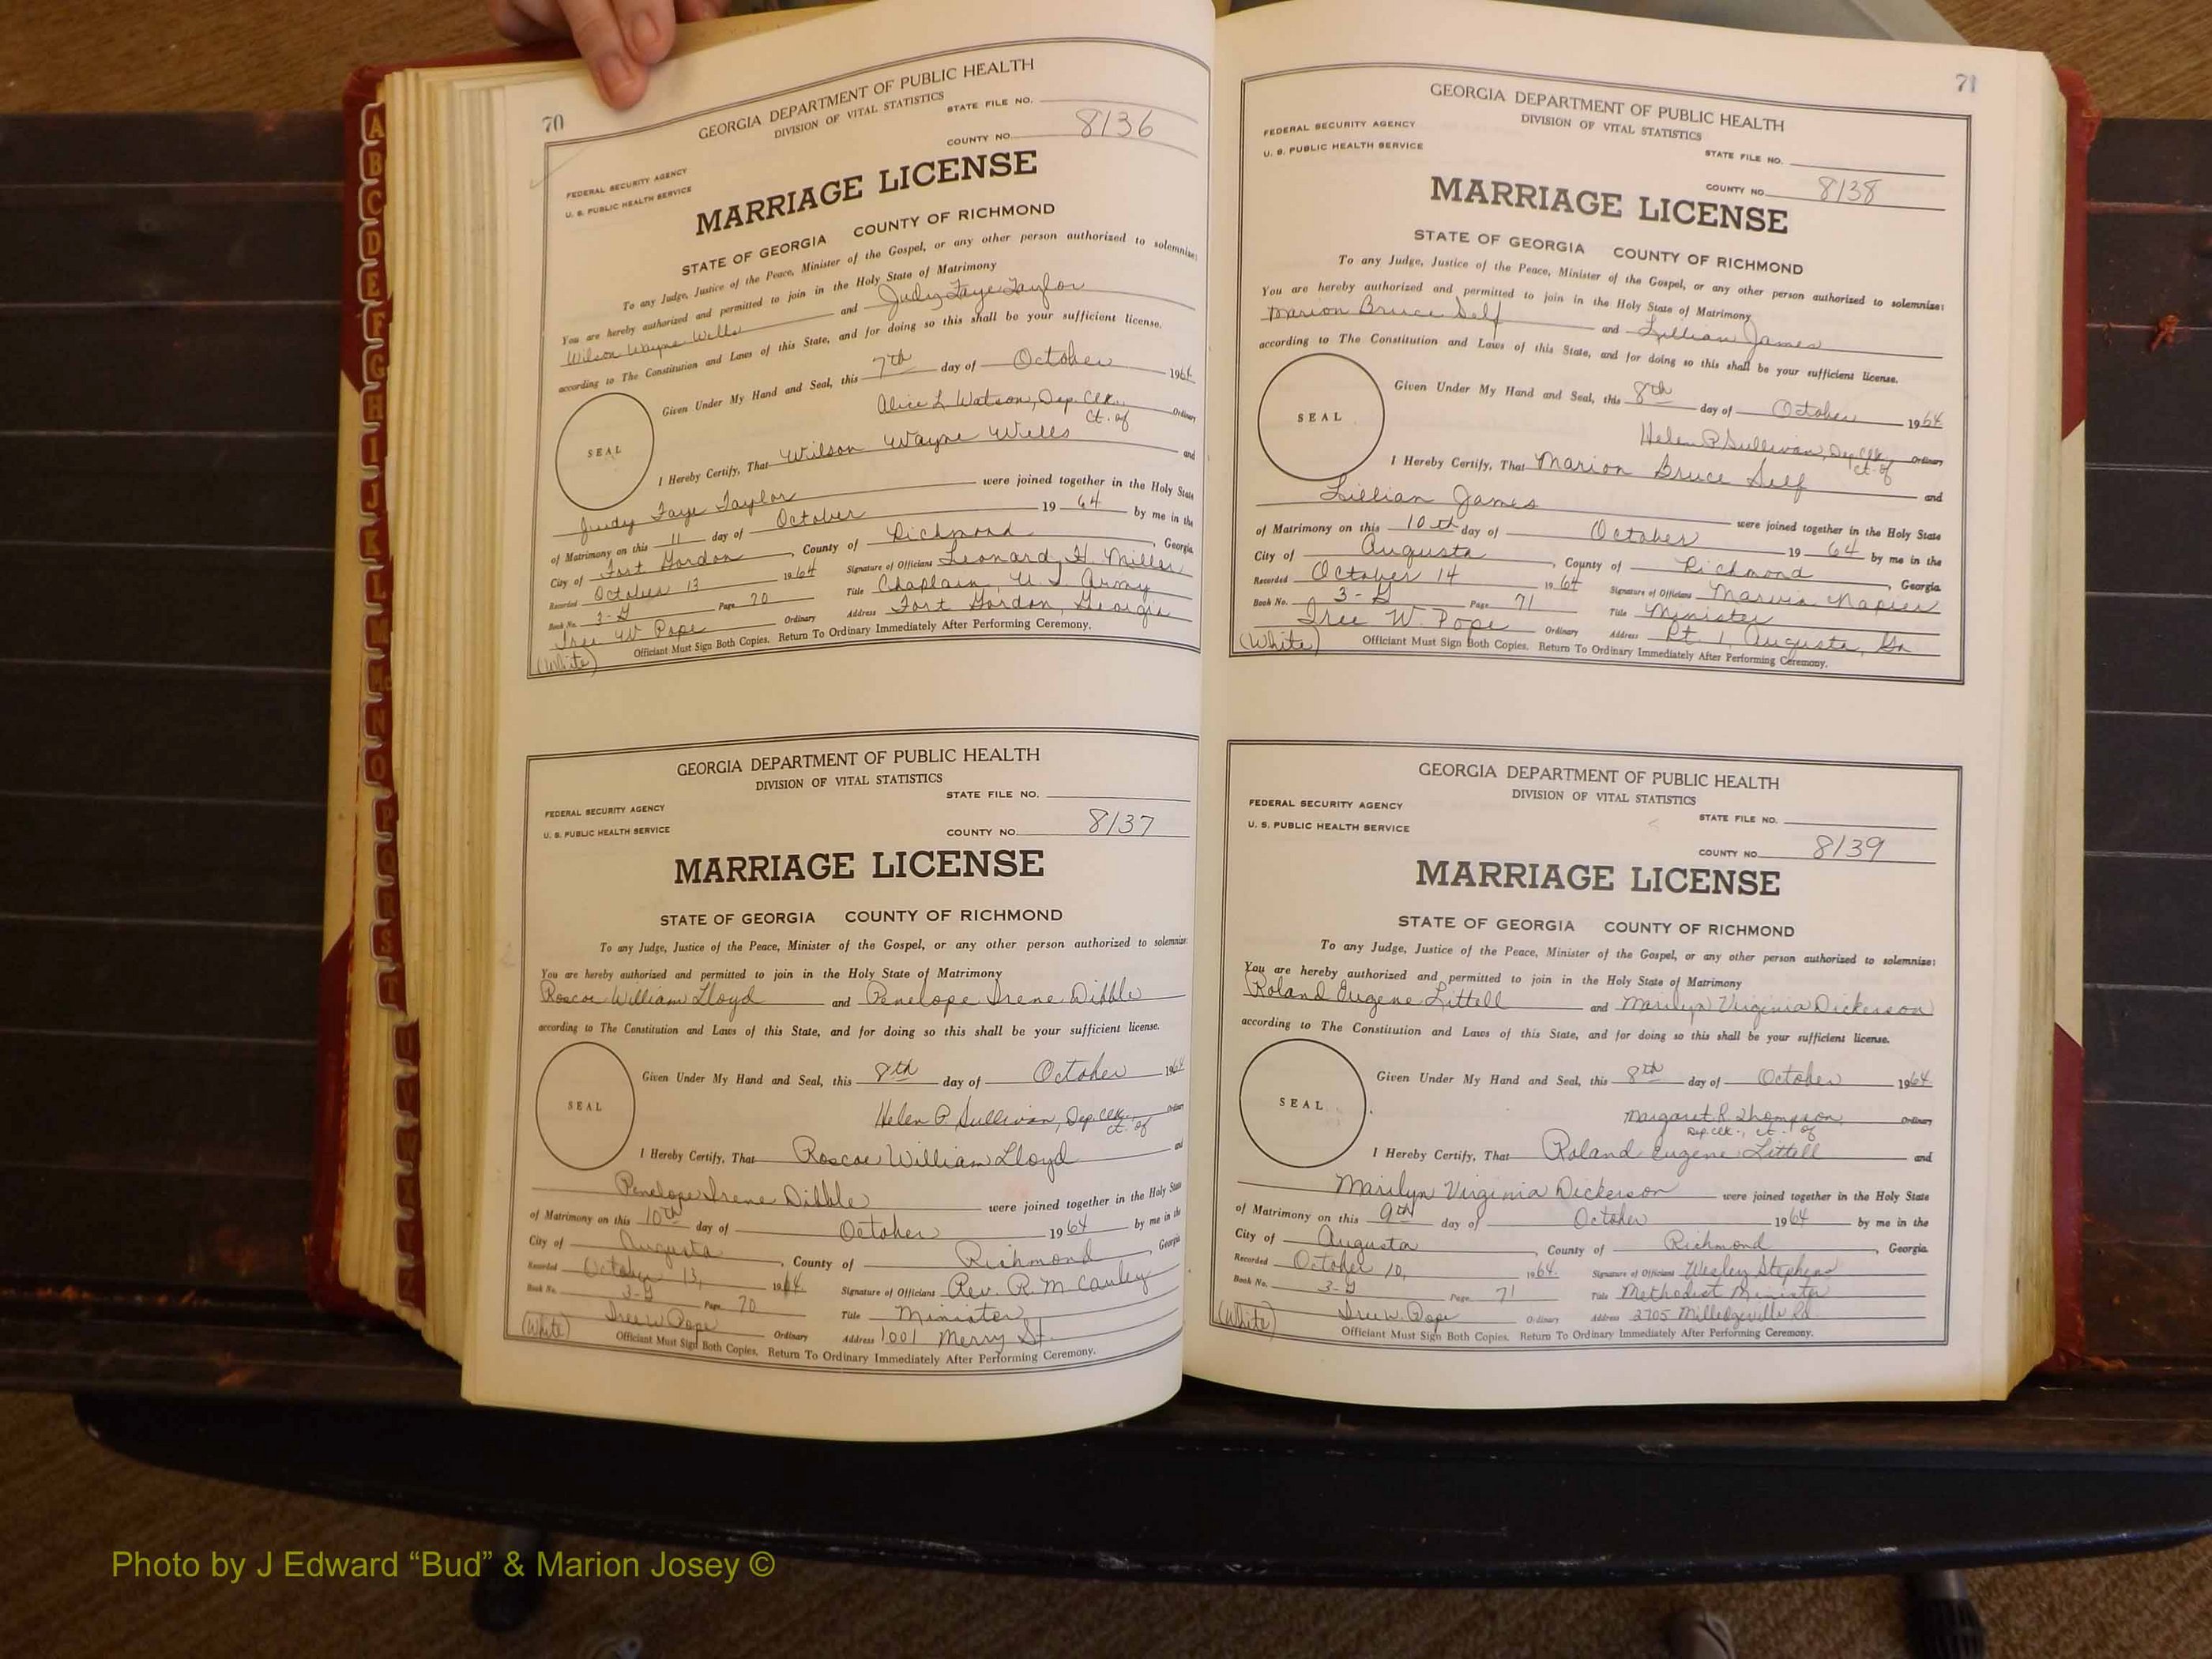 A
B
C
D
E
F
G
H
I
J
K
L
M
N
O
P
Q
R
S
T
70
GEORGIA DEPARTMENT OF PUBLIC HEALTH
DIVISION OF VITAL STATISTICS
STATE FILE NO.
FEDERAL SECURITY AGENCY
U. S. PUBLIC HEALTH SERVICE
COUNTY NO. 8136
MARRIAGE LICENSE
STATE OF GEORGIA COUNTY OF RICHMOND
To any Judge, Justice of the Peace, Minister of the Gospel, or any other person authorized to solemnize:
You are hereby authorized and permitted to join in the Holy State of Matrimony
Wilson Wayne Wells and Judy Faye Taylor
according to The Constitution and Laws of this State, and for doing so this shall be your sufficient license.
Given Under My Hand and Seal, this 7th day of October 1964
Alice L. Watson, Dep. Clk. Ordinary
Ct. of
SEAL
I Hereby Certify, That Wilson Wayne Wells and
Judy Faye Taylor were joined together in the Holy State
of Matrimony on this 11 day of October 19 64 by me in the
City of Fort Gordon, County of Richmond, Georgia
Recorded October 13 1964 Signature of Officiant Leonard H. Miller
Book No. 3-G Page 70 Title Chaplain, U.S. Army
Iree W Pope Ordinary Address Fort Gordon, Georgia
(White) Officiant Must Sign Both Copies. Return To Ordinary Immediately After Performing Ceremony.
GEORGIA DEPARTMENT OF PUBLIC HEALTH
DIVISION OF VITAL STATISTICS
STATE FILE NO.
FEDERAL SECURITY AGENCY
U. S. PUBLIC HEALTH SERVICE
COUNTY NO. 8137
MARRIAGE LICENSE
STATE OF GEORGIA COUNTY OF RICHMOND
To any Judge, Justice of the Peace, Minister of the Gospel, or any other person authorized to solemnize:
You are hereby authorized and permitted to join in the Holy State of Matrimony
Roscoe William Lloyd and Penelope Irene Dibble
according to The Constitution and Laws of this State, and for doing so this shall be your sufficient license.
Given Under My Hand and Seal, this 8th day of October 1964
Helen P. Sullivan, Dep. Clk. Ordinary
Ct. of
SEAL
I Hereby Certify, That Roscoe William Lloyd and
Penelope Irene Dibble were joined together in the Holy State
of Matrimony on this 10th day of October 19 64 by me in the
City of Augusta, County of Richmond, Georgia
Recorded October 13, 1964 Signature of Officiant Rev. R. M. Cauley
Book No. 3-G Page 70 Title Minister
Iree W Pope Ordinary Address 1001 Merry St.
(White) Officiant Must Sign Both Copies. Return To Ordinary Immediately After Performing Ceremony.
71
GEORGIA DEPARTMENT OF PUBLIC HEALTH
DIVISION OF VITAL STATISTICS
FEDERAL SECURITY AGENCY
U. S. PUBLIC HEALTH SERVICE
STATE FILE NO.
COUNTY NO. 8138
MARRIAGE LICENSE
STATE OF GEORGIA COUNTY OF RICHMOND
To any Judge, Justice of the Peace, Minister of the Gospel, or any other person authorized to solemnize:
You are hereby authorized and permitted to join in the Holy State of Matrimony
Marion Bruce Self and Lillian James
according to The Constitution and Laws of this State, and for doing so this shall be your sufficient license.
Given Under My Hand and Seal, this 8th day of October 1964
Helen P. Sullivan, Dep. Clk. Ordinary
Ct. of
SEAL
I Hereby Certify, That Marion Bruce Self and
Lillian James were joined together in the Holy State
of Matrimony on this 10th day of October 19 64 by me in the
City of Augusta, County of Richmond, Georgia
Recorded October 14 1964 Signature of Officiant Marvin Napier
Book No. 3-G Page 71 Title Minister
Iree W. Pope Ordinary Address Rt. 1, Augusta, Ga
(White) Officiant Must Sign Both Copies. Return To Ordinary Immediately After Performing Ceremony.
GEORGIA DEPARTMENT OF PUBLIC HEALTH
DIVISION OF VITAL STATISTICS
FEDERAL SECURITY AGENCY
U. S. PUBLIC HEALTH SERVICE
STATE FILE NO.
COUNTY NO. 8139
MARRIAGE LICENSE
STATE OF GEORGIA COUNTY OF RICHMOND
To any Judge, Justice of the Peace, Minister of the Gospel, or any other person authorized to solemnize:
You are hereby authorized and permitted to join in the Holy State of Matrimony
Roland Eugene Littell and Marilyn Virginia Dickerson
according to The Constitution and Laws of this State, and for doing so this shall be your sufficient license.
Given Under My Hand and Seal, this 8th day of October 1964
Margaret R. Thompson, Ordinary
Dep. Clk., Ct. of
SEAL
I Hereby Certify, That Roland Eugene Littell and
Marilyn Virginia Dickerson were joined together in the Holy State
of Matrimony on this 9th day of October 1964 by me in the
City of Augusta, County of Richmond, Georgia
Recorded October 10, 1964. Signature of Officiant Wesley Stephens
Book No. 3-G Page 71 Title Methodist Minister
Iree W. Pope Ordinary Address 2705 Milledgeville Rd
(White) Officiant Must Sign Both Copies. Return To Ordinary Immediately After Performing Ceremony.
Photo by J Edward “Bud” & Marion Josey ©